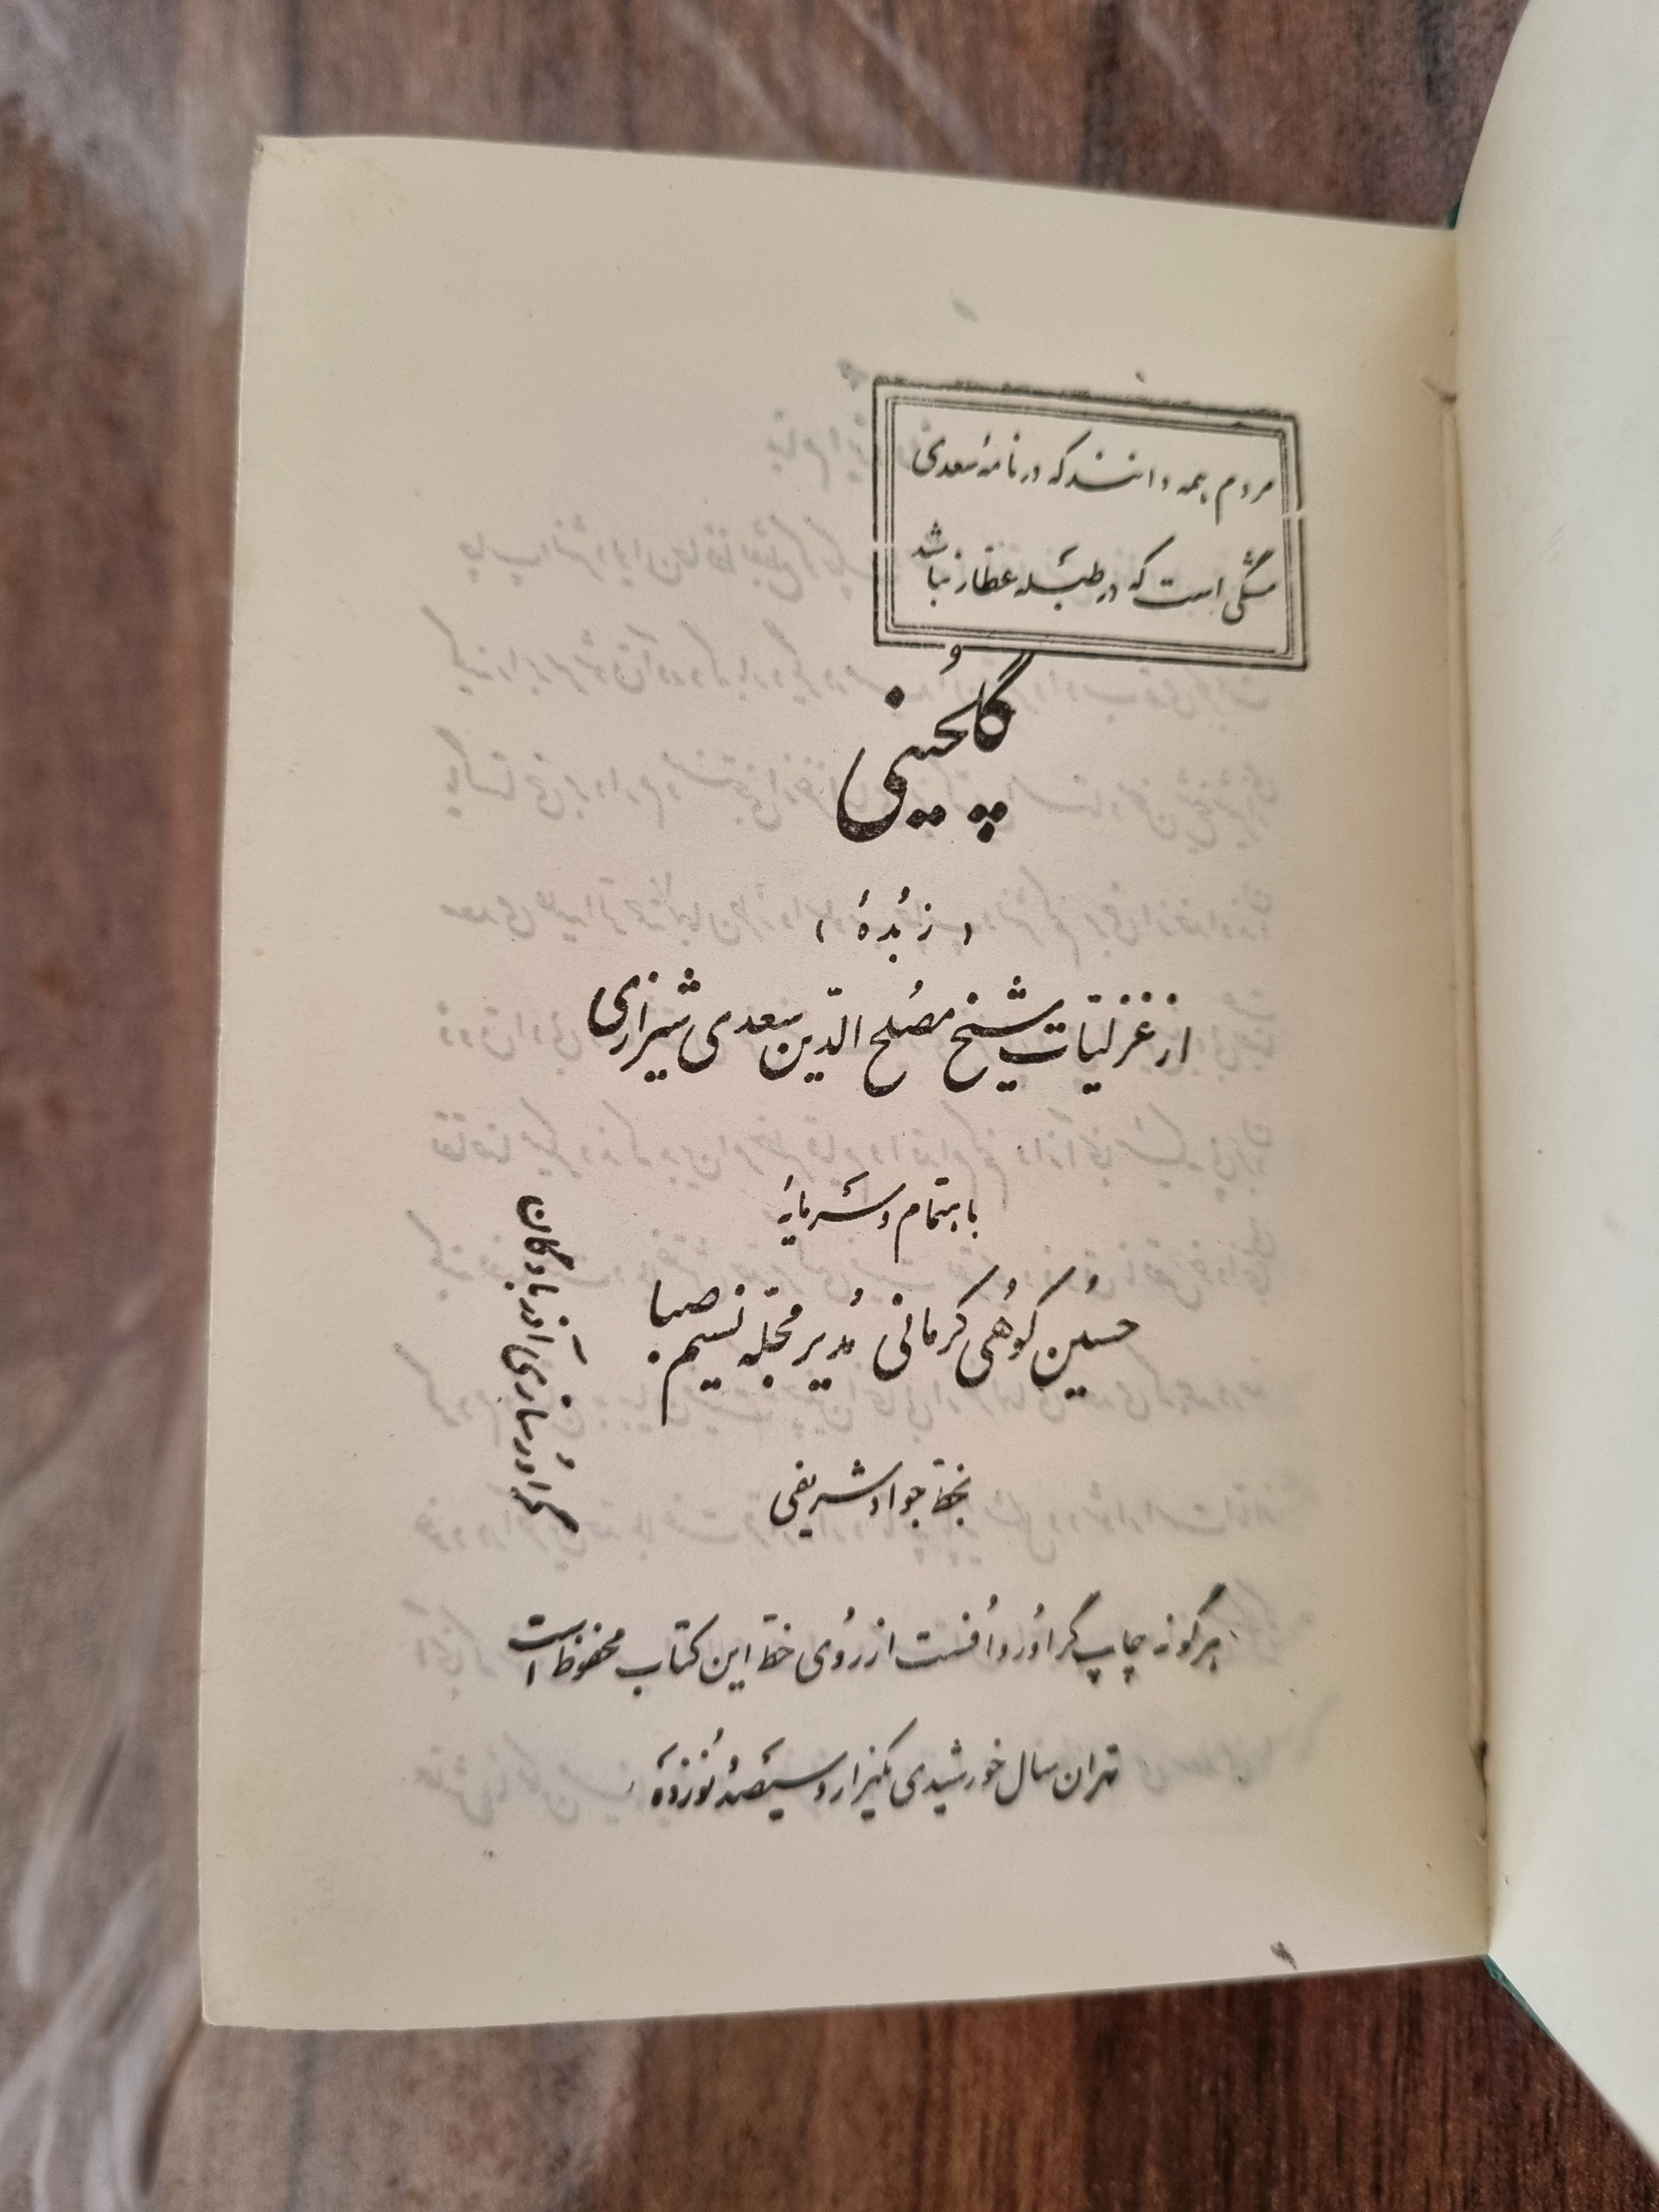 مردم همه دانند که در نامهٔ سعدی
مشکی است که در طبله عطار نباشد
گلچینی
، زُبدهٔ ،
از غزلیّات شیخ مُصلح الدّین سعدی شیرازی
باهتمام و سرمایهٔ
حسین کوُهی کرمانی مُدیر مجلّه نسیم صبا
گراوُرسازی آذربادگان
بخطّ جواد شریفی
هرگونه چاپ گراوُر و اُفست از روُی خطّ این کتاب محفوظ است
تهران سال خورشیدی یکهزار و سیصدُ نوُزدَه